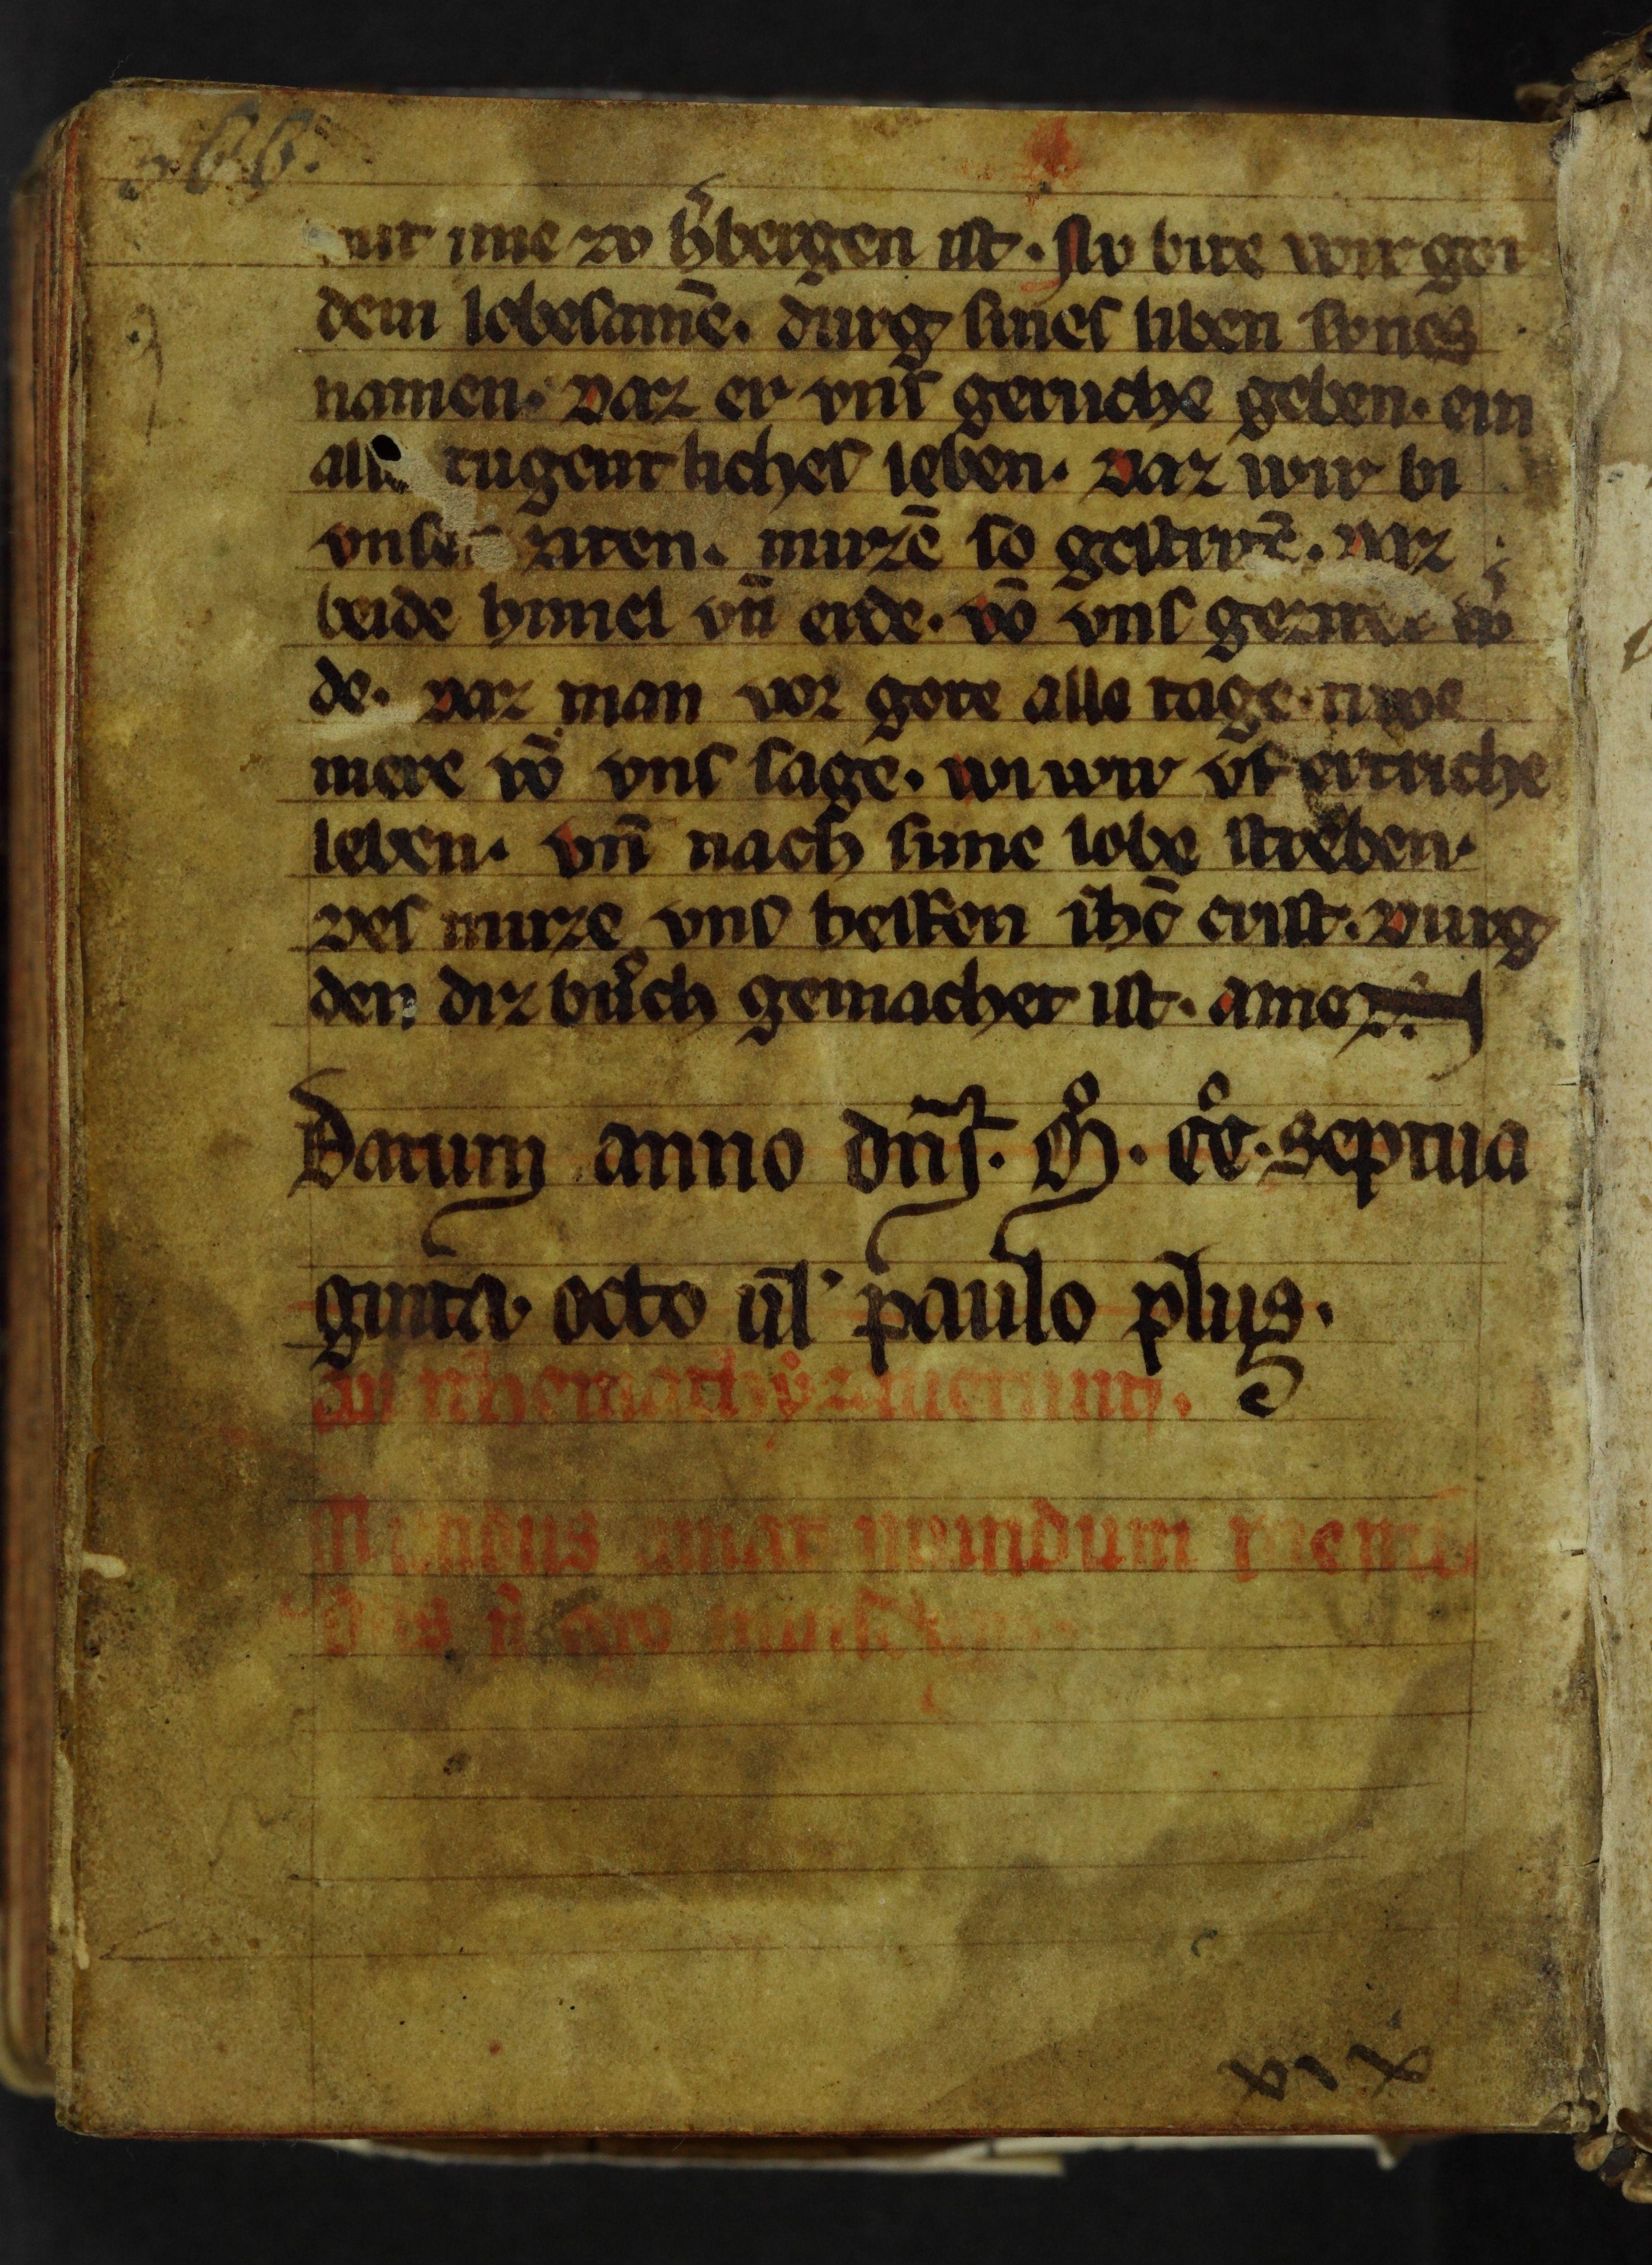 mit ime zv h͛bergen ist. Nv bite wir got
dem lobesamē. durg sines liben svnes
namen. Daz er vns geruche geben. ein
alle tugent liches leben. Daz wir bi
vnser ziten. muzē so gestritē. Daz
beide himel vn̄ erde. vō vns gezieret w͛
de. Daz man vor gote alle tage. niwe
mere vō vns sage. wi wir vf ertriche
leben. vn̄ nach sime lobe streben.
Des muze vns helfen ih̄c crist. Durg
den diz bůch gemachet ist. amen
Datum anno dn̄j. Mͦ. CͦC. septua
ginta octo ul̄' paulo pl̄us.
Mundus amat mundum
XIX